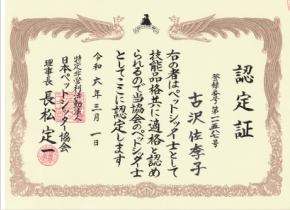 認定証
登録番号・第一五七号
古沢佐季子
右の者はペットシッター士として
技能品格共に適格と認め
られるので当協会のペットシッター士
としてここに認定します
令和六年三月一日
特定非営利活動法人
日本ペットシッター協会
理事長 長松定一